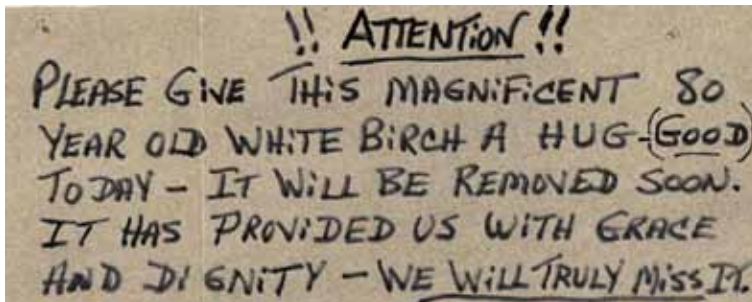 !! ATTENTION !!
PLEASE GIVE THIS MAGNIFICENT 80
YEAR OLD WHITE BIRCH A HUG-(GOOD)
TODAY - IT WILL BE REMOVED SOON.
IT HAS PROVIDED US WITH GRACE
AND DIGNITY - WE WILL TRULY MISS IT.